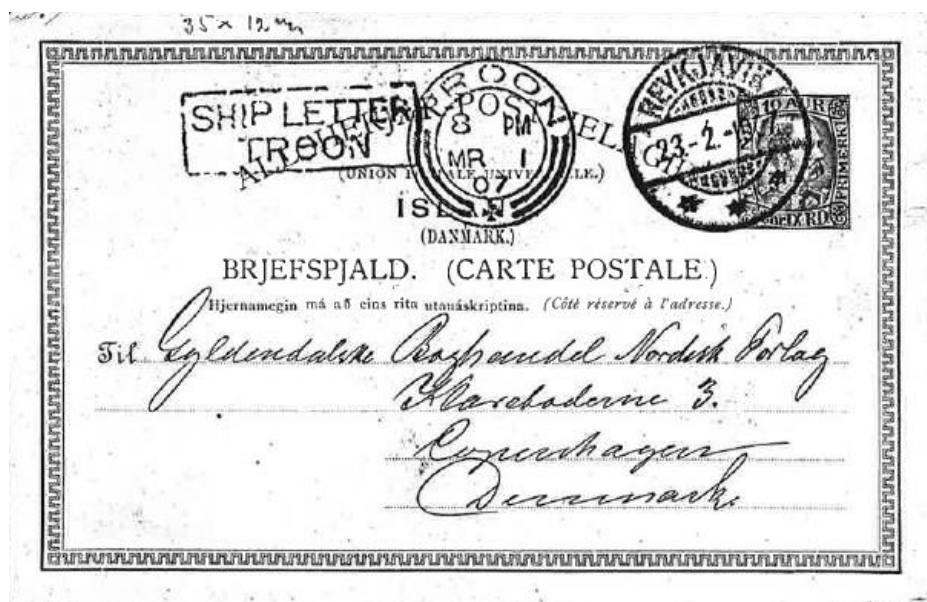 35 x 12 mm
SHIP LETTER
TROON
TROON
8 PM
MR 1
07
REYKJAVIK
23-2-1907
10 AUR
PRIMERKI
ALÞJÓÐA PÓSTFJEL
(UNION POSTALE UNIVERSELLE.)
ÍSLAND
(DANMARK.)
BRJEFSPJALD. (CARTE POSTALE.)
Hjernamegin má að eins rita utanáskriptina. (Côté réservé à l'adresse.)
Til Gyldendalske Boghandel Nordisk Forlag
Klareboderne 3.
Copenhagen
Denmark.